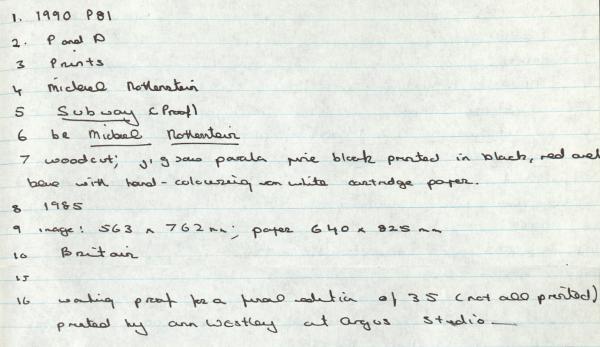 1. 1990 P81
2. P and D
3 Prints
4 Michael Rothenstein
5 Subway (Proof)
6 be Michael Rothenstein
7 woodcut; jigsaw pine block printed in black, red and
with hand-colouring on white cartridge paper.
8 1985
9 image: 563 x 762 mm; paper 640 x 825 mm
10 Britain
15
16 working proof for a final edition of 35 (not all printed)
printed by Ann Westley at Argus Studio